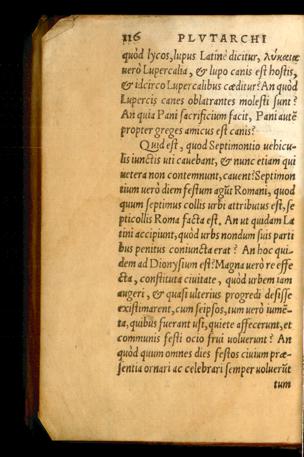 116 PLVTARCHI
quòd lycos, lupus Latinè dicitur, λύκαια
uerò Lupercalia, & lupo canis est hostis,
& idcirco Lupercalibus cæditur? An quòd
Lupercis canes oblatrantes molesti sunt?
An quia Pani sacrificium facit, Pani autē
propter greges amicus est canis?
Quid est, quod Septimontio uehicu-
lis iunctis uti cauebant, & nunc etiam qui
uetera non contemnunt, cauent? Septimon
tium uerò diem festum agūt Romani, quod
quum septimus collis urbi attributus est, se
pticollis Roma facta est. An ut quidam La
tini accipiunt, quòd urbs nondum suis parti
bus penitus coniuncta erat? An hoc qui-
dem ad Dionysium est? Magna uerò re effe
cta, constituta ciuitate, quòd urbem iam
augeri, & quasi ulterius progredi desisse
existimarent, cum seipsos, tum uerò iumē-
ta, quibus fuerant usi, quiete affecerunt, et
communis festi ocio frui uoluerunt? An
quòd quum omnes dies festos ciuium præ-
sentia ornari ac celebrari semper uoluerūt
tum